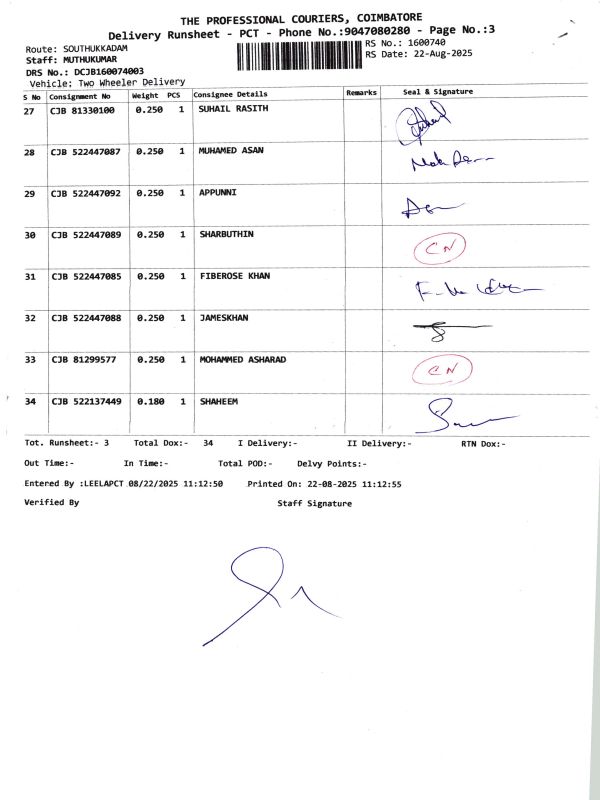 THE PROFESSIONAL COURIERS, COIMBATORE
Delivery Runsheet - PCT - Phone No.:9047080280 - Page No.:3
Route: SOUTHUKKADAM
RS No.: 1600740
Staff: MUTHUKUMAR
RS Date: 22-Aug-2025
DRS No.: DCJB160074003
Vehicle: Two Wheeler Delivery
S No Consignment No Weight PCS Consignee Details Remarks Seal & Signature
27 CJB 81330100 0.250 1 SUHAIL RASITH
28 CJB 522447087 0.250 1 MUHAMED ASAN
29 CJB 522447092 0.250 1 APPUNNI
30 CJB 522447089 0.250 1 SHARBUTHIN CN
31 CJB 522447085 0.250 1 FIBEROSE KHAN
32 CJB 522447088 0.250 1 JAMESKHAN
33 CJB 81299577 0.250 1 MOHAMMED ASHARAD CN
34 CJB 522137449 0.180 1 SHAHEEM
Tot. Runsheet:- 3 Total Dox:- 34 I Delivery:- II Delivery:- RTN Dox:-
Out Time:- In Time:- Total POD:- Delvy Points:-
Entered By :LEELAPCT 08/22/2025 11:12:50 Printed On: 22-08-2025 11:12:55
Verified By Staff Signature